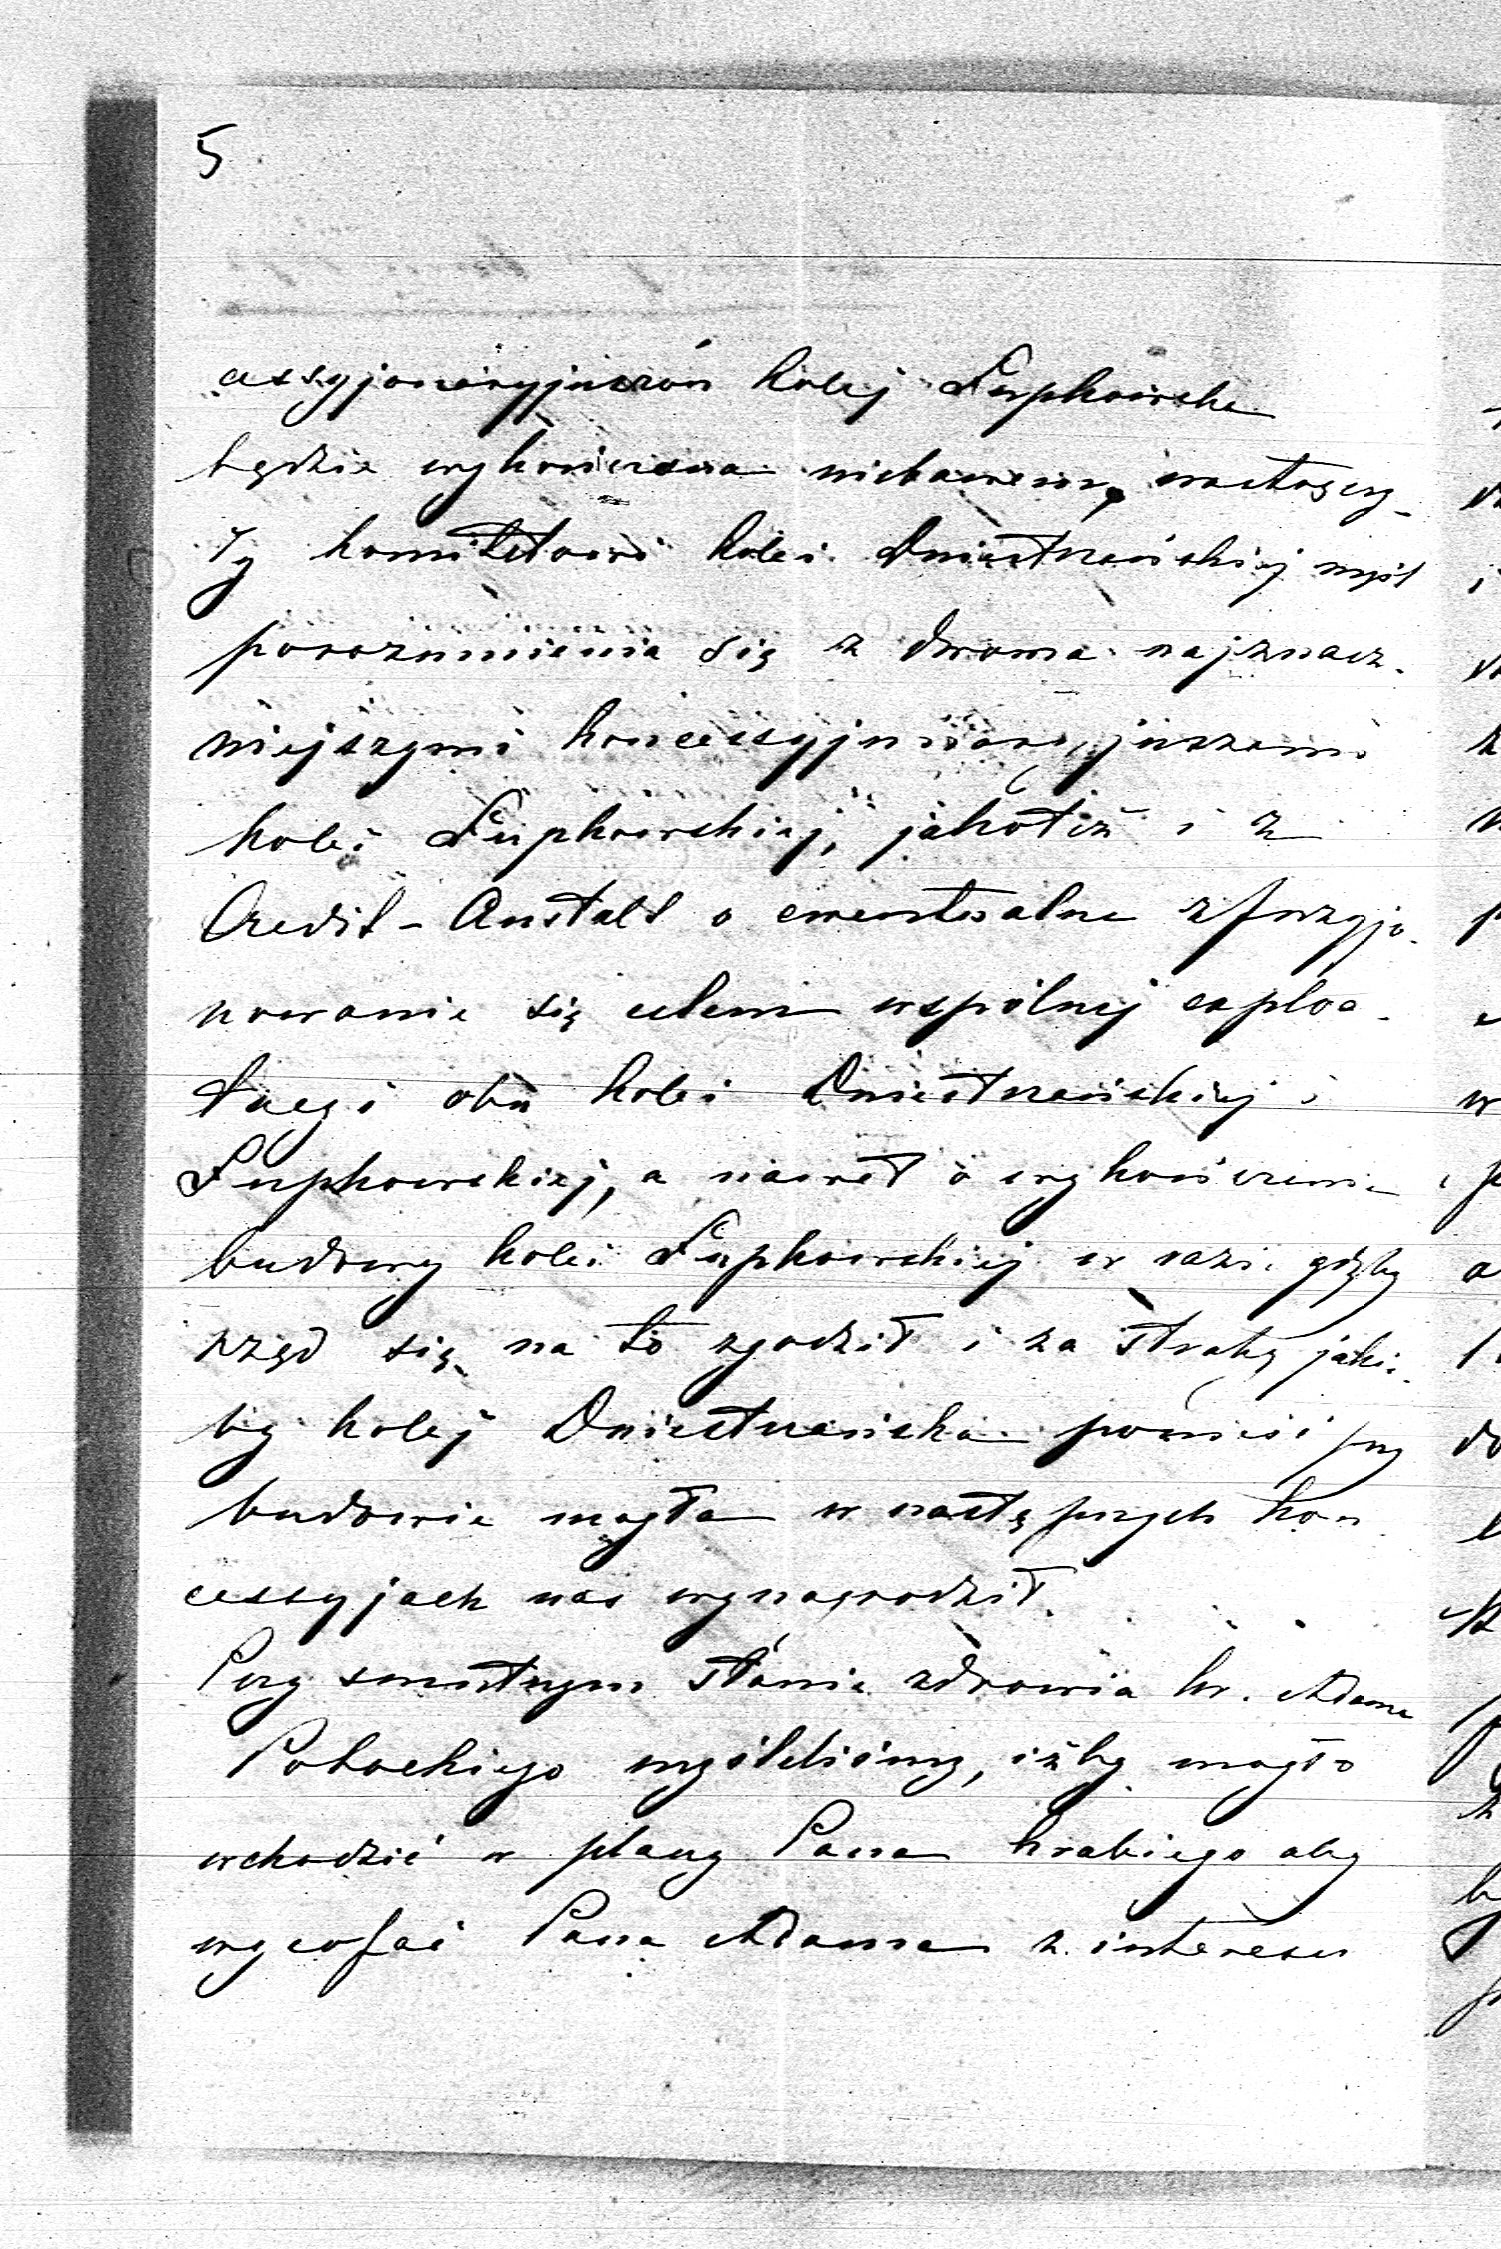 5
cessyjonaryjuszów kolej Łupkowska
będzie wykończona niebawem, nastręczy-
ły komitetowi kolei Dniestrzańskiej myśl
porozumienia się z dwoma najznacz-
niejszymi koncessyjonaryjuszami
kolei Łupkowskiej, jakoteż i z
Credit-Anstalt o ewentualne zfuzyjo-
nowanie się celem wspólnej exploa-
tacyi obu kolei Dniestrzańskiej i
Łupkowskiej, a nawet o wykończenie
budowy kolei Łupkowskiej w razie gdyby
rząd się na to zgodził i za stratę jaką
by kolej Dniestrzańska ponieść przy
budowie mogła w następnych kon
cessyjach nas wynagrodził.
Przy smutnym stanie zdrowia hr. Adama
Potockiego myśleliśmy, iżby mogło
wchodzić w plany Pana hrabiego aby
wycofać Pana Adama z interesu